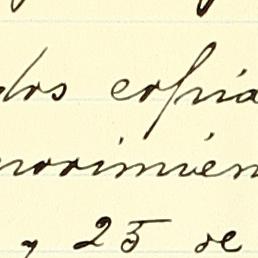 dos copia
novimien
y 25 de